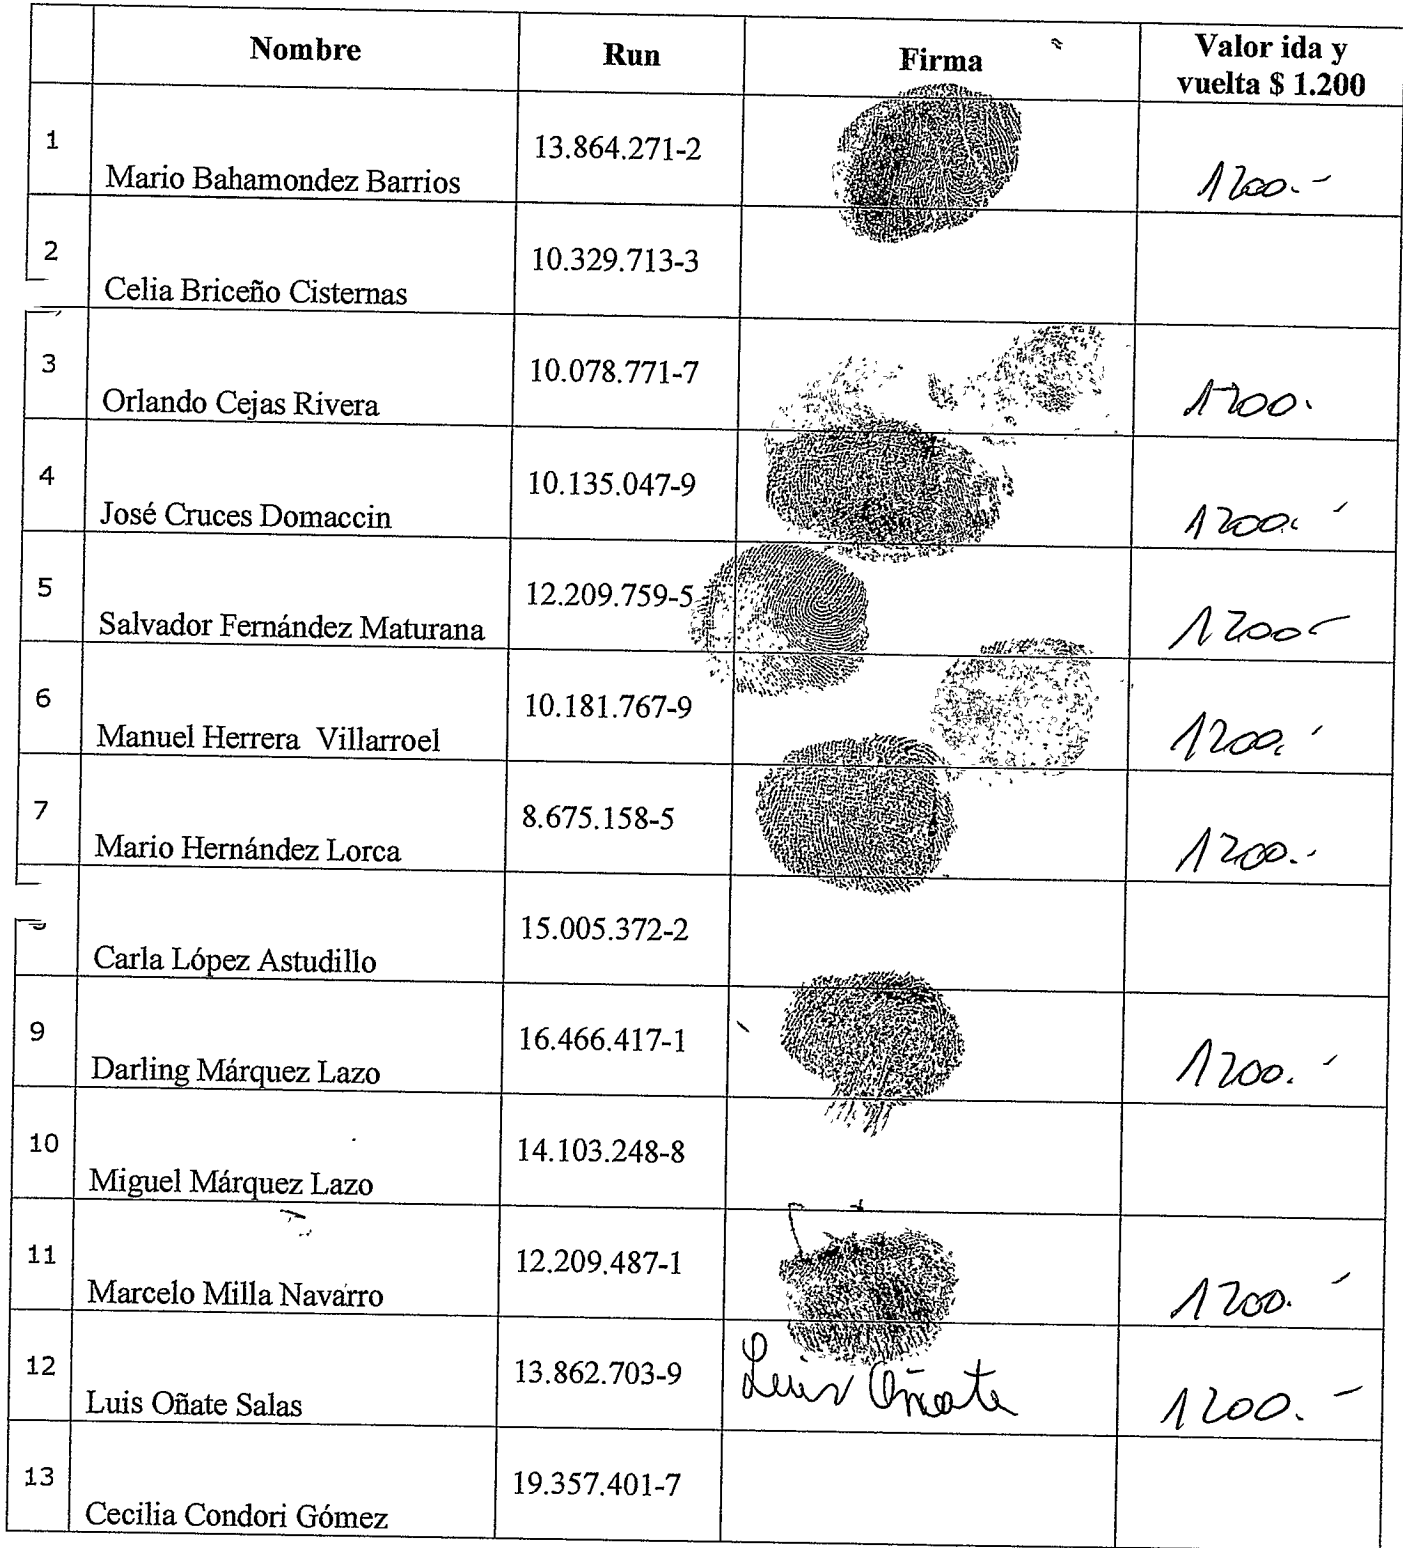 Nombre Run Firma Valor ida y
vuelta $ 1.200
1 Mario Bahamondez Barrios 13.864.271-2 1200.-
2 Celia Briceño Cisternas 10.329.713-3
3 Orlando Cejas Rivera 10.078.771-7 1200.
4 José Cruces Domaccin 10.135.047-9 1200.-
5 Salvador Fernández Maturana 12.209.759-5 1200-
6 Manuel Herrera Villarroel 10.181.767-9 1200.-
7 Mario Hernández Lorca 8.675.158-5 1200.-
Carla López Astudillo 15.005.372-2
9 Darling Márquez Lazo 16.466.417-1 1200.-
10 Miguel Márquez Lazo 14.103.248-8
11 Marcelo Milla Navarro 12.209.487-1 1200.-
12 Luis Oñate Salas 13.862.703-9 Luis Oñate 1200.-
13 Cecilia Condori Gómez 19.357.401-7